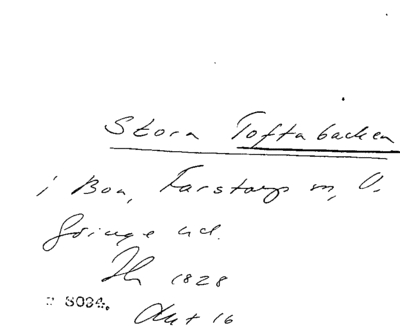 Stora Toftabacken
i Boa, Farstorp sn, V.
Göinge hd.
1828
8034.
Akt 16